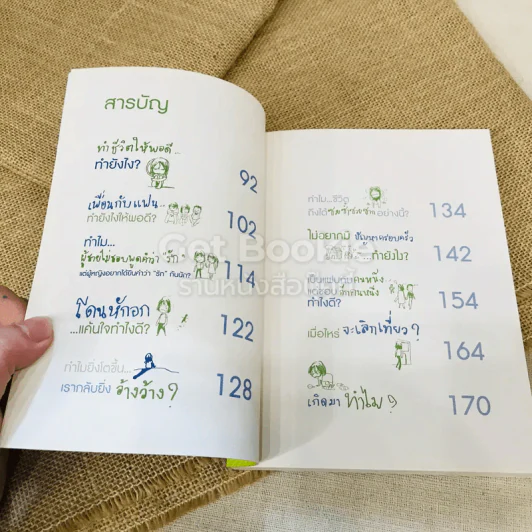 สารบัญ
ทำชีวิตให้พอดี...
ทำยังไง?
92
เพื่อนกับแฟน...
ทำยังไงให้พอดี?
102
ทำไม...
ผู้ชายไม่ชอบพูดคำว่า "รัก"
แต่ผู้หญิงอยากได้ยินคำว่า "รัก" กันนัก?
114
โดนหักอก
...แค้นใจทำไงดี?
122
ทำไมยิ่งโตขึ้น...
เรากลับยิ่ง อ้างว้าง?
128
ทำไม...ชีวิต
ถึงได้ อย่างนี้?
134
ไม่อยากมี ปัญหาครอบครัว
ทำยังไง?
142
เป็นแฟนกับคนหนึ่ง
แต่ชอบ
ทำไงดี?
154
เมื่อไหร่ จะเลิกเที่ยว?
164
เกิดมา ทำไม?
170
Get Books
ร้านหนังสือ